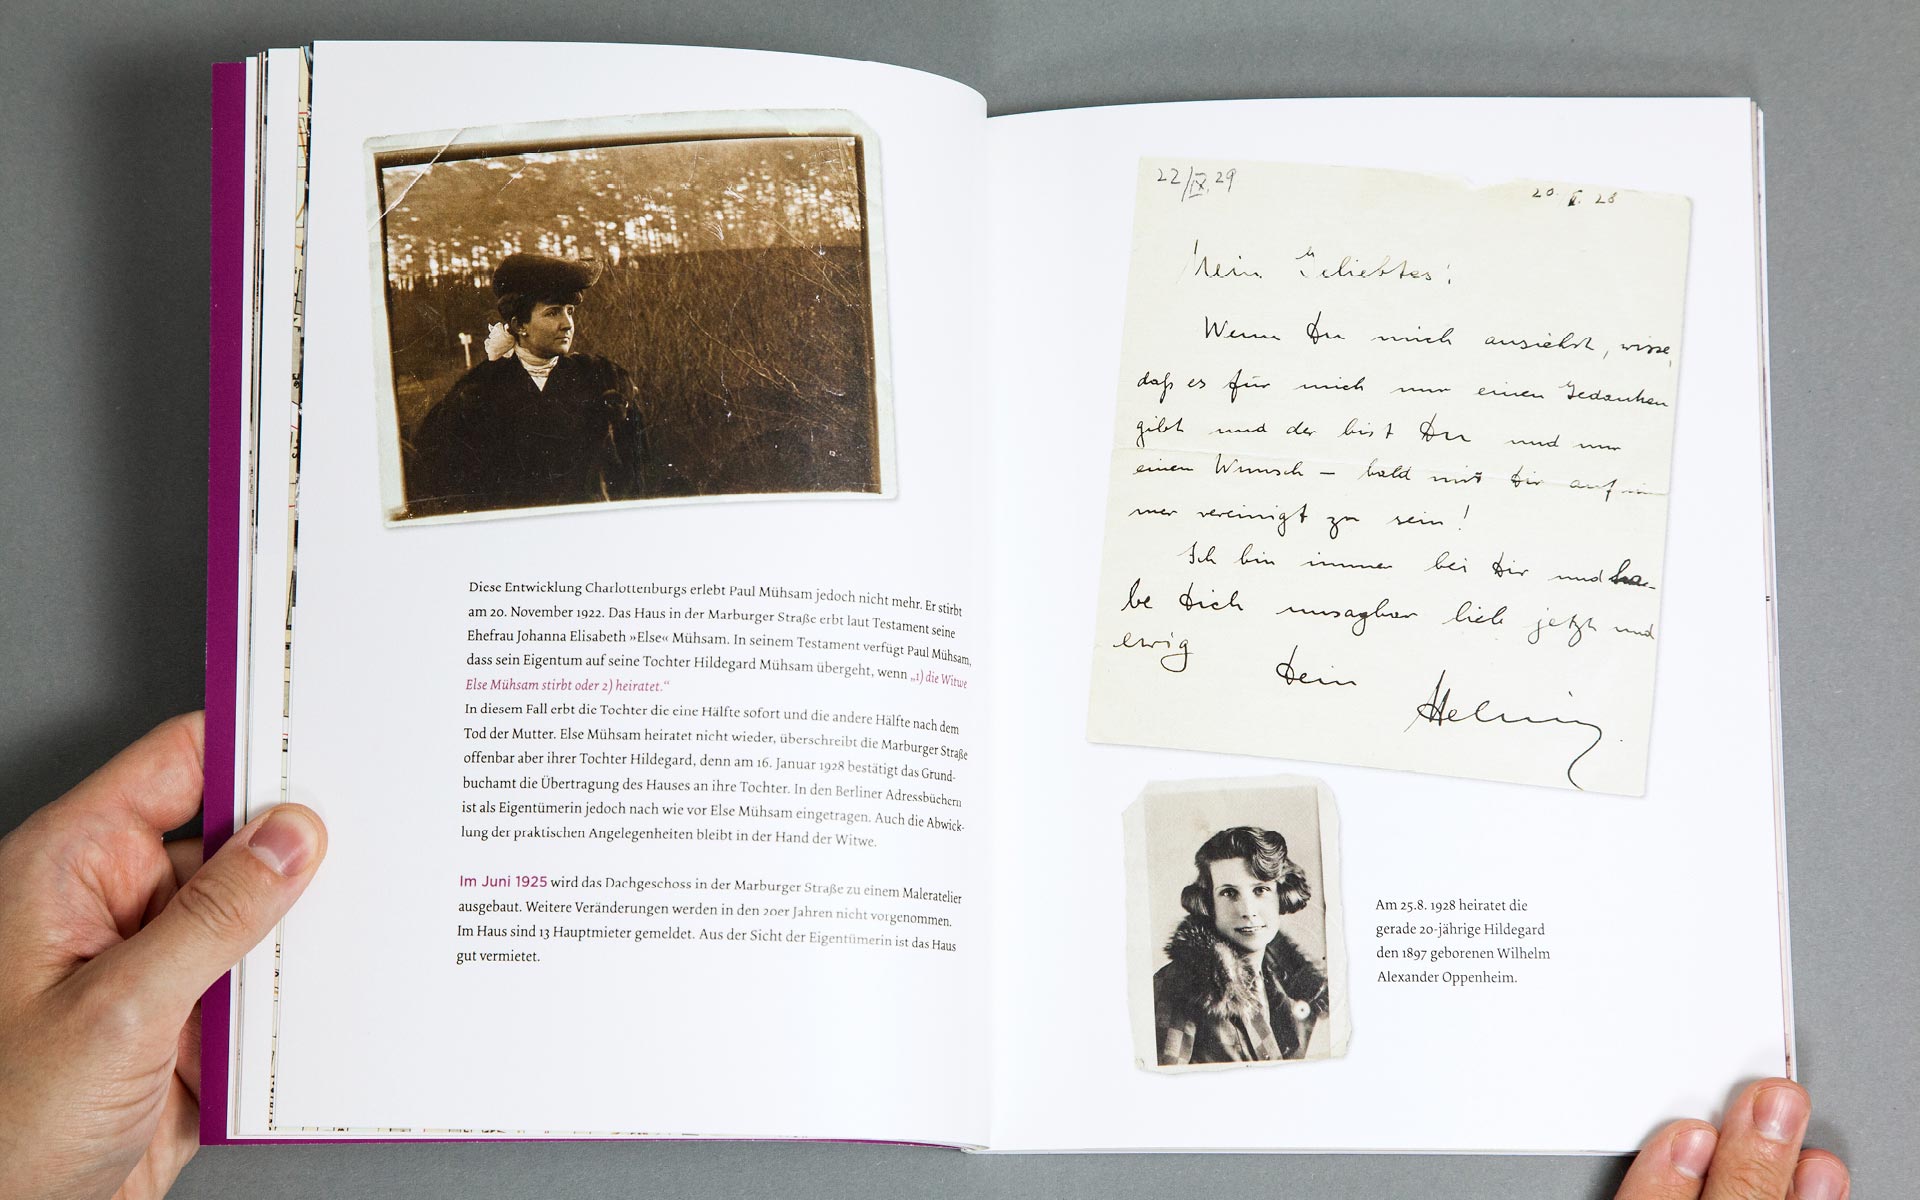 Diese Entwicklung Charlottenburgs erlebt Paul Mühsam jedoch nicht mehr. Er stirbt
am 20. November 1922. Das Haus in der Marburger Straße erbt laut Testament seine
Ehefrau Johanna Elisabeth »Else« Mühsam. In seinem Testament verfügt Paul Mühsam,
dass sein Eigentum auf seine Tochter Hildegard Mühsam übergeht, wenn „1) die Witwe
Else Mühsam stirbt oder 2) heiratet.“
In diesem Fall erbt die Tochter die eine Hälfte sofort und die andere Hälfte nach dem
Tod der Mutter. Else Mühsam heiratet nicht wieder, überschreibt die Marburger Straße
offenbar aber ihrer Tochter Hildegard, denn am 16. Januar 1928 bestätigt das Grund-
buchamt die Übertragung des Hauses an ihre Tochter. In den Berliner Adressbüchern
ist als Eigentümerin jedoch nach wie vor Else Mühsam eingetragen. Auch die Abwick-
lung der praktischen Angelegenheiten bleibt in der Hand der Witwe.
Im Juni 1925 wird das Dachgeschoss in der Marburger Straße zu einem Maleratelier
ausgebaut. Weitere Veränderungen werden in den 20er Jahren nicht vorgenommen.
Im Haus sind 13 Hauptmieter gemeldet. Aus der Sicht der Eigentümerin ist das Haus
gut vermietet.
22/IX.29
20. V. 28
Mein Geliebtes!
Wenn Du mich ansiehst, wisse,
daß es für mich nur einen Gedanken
gibt und der bist Du und nur
einen Wunsch – bald mit Dir auf im
mer vereinigt zu sein!
Ich bin immer bei Dir und ha-
be Dich unsagbar lieb jetzt und
ewig Dein
Am 25.8. 1928 heiratet die
gerade 20-jährige Hildegard
den 1897 geborenen Wilhelm
Alexander Oppenheim.